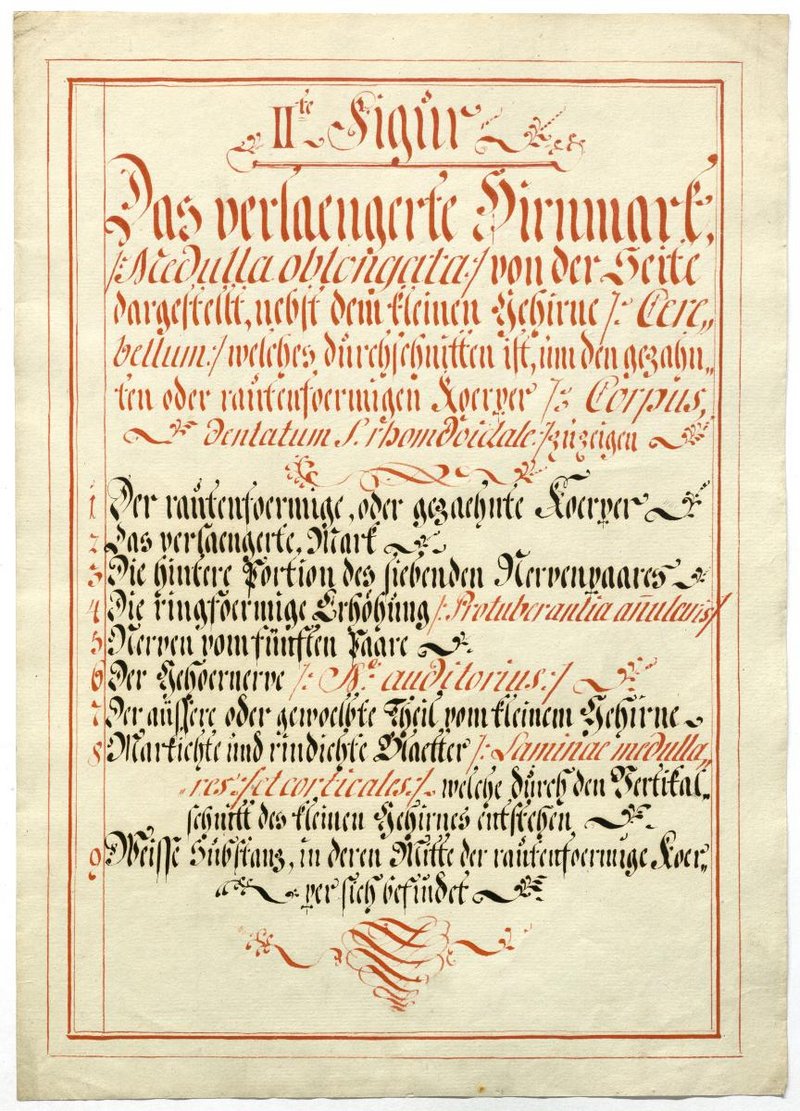 IIte Figur
Das verlaengerte Hirnmark,
/:Medulla oblongata:/ von der Seite
dargestellt, nebst dem kleinen Gehirne /: Cere„
bellum:/ welches durchschnitten ist, um den gezahn„
ten oder rautenfoermigen Koerper /: Corpus,
dentatum S. rhomdoidale:/ zuzeigen
1 Der rautenfoermige, oder gezaehnte Koerper
2 Das verlaengerte, Mark
3 Die hintere Portion des siebenden Nervenpaares
4 Die ringfoermige Erhöhung /: Protuberantia añularis/
5 Nerven vom fünften Paare
6 Der Gehoernerve /: auditorius:/
7 Der äussere oder gewoelbte Theil vom kleinem Gehirne
8 Markichte und rindichte Blaetter /: Laminae medulla„
„res:/et corticales:/ welche durch den Vertikal„
schnitt des kleinen Gehirnes entstehen
9 Weisse Substanz, in deren Mitte der rautenfoermige Koer„
per sich befindet